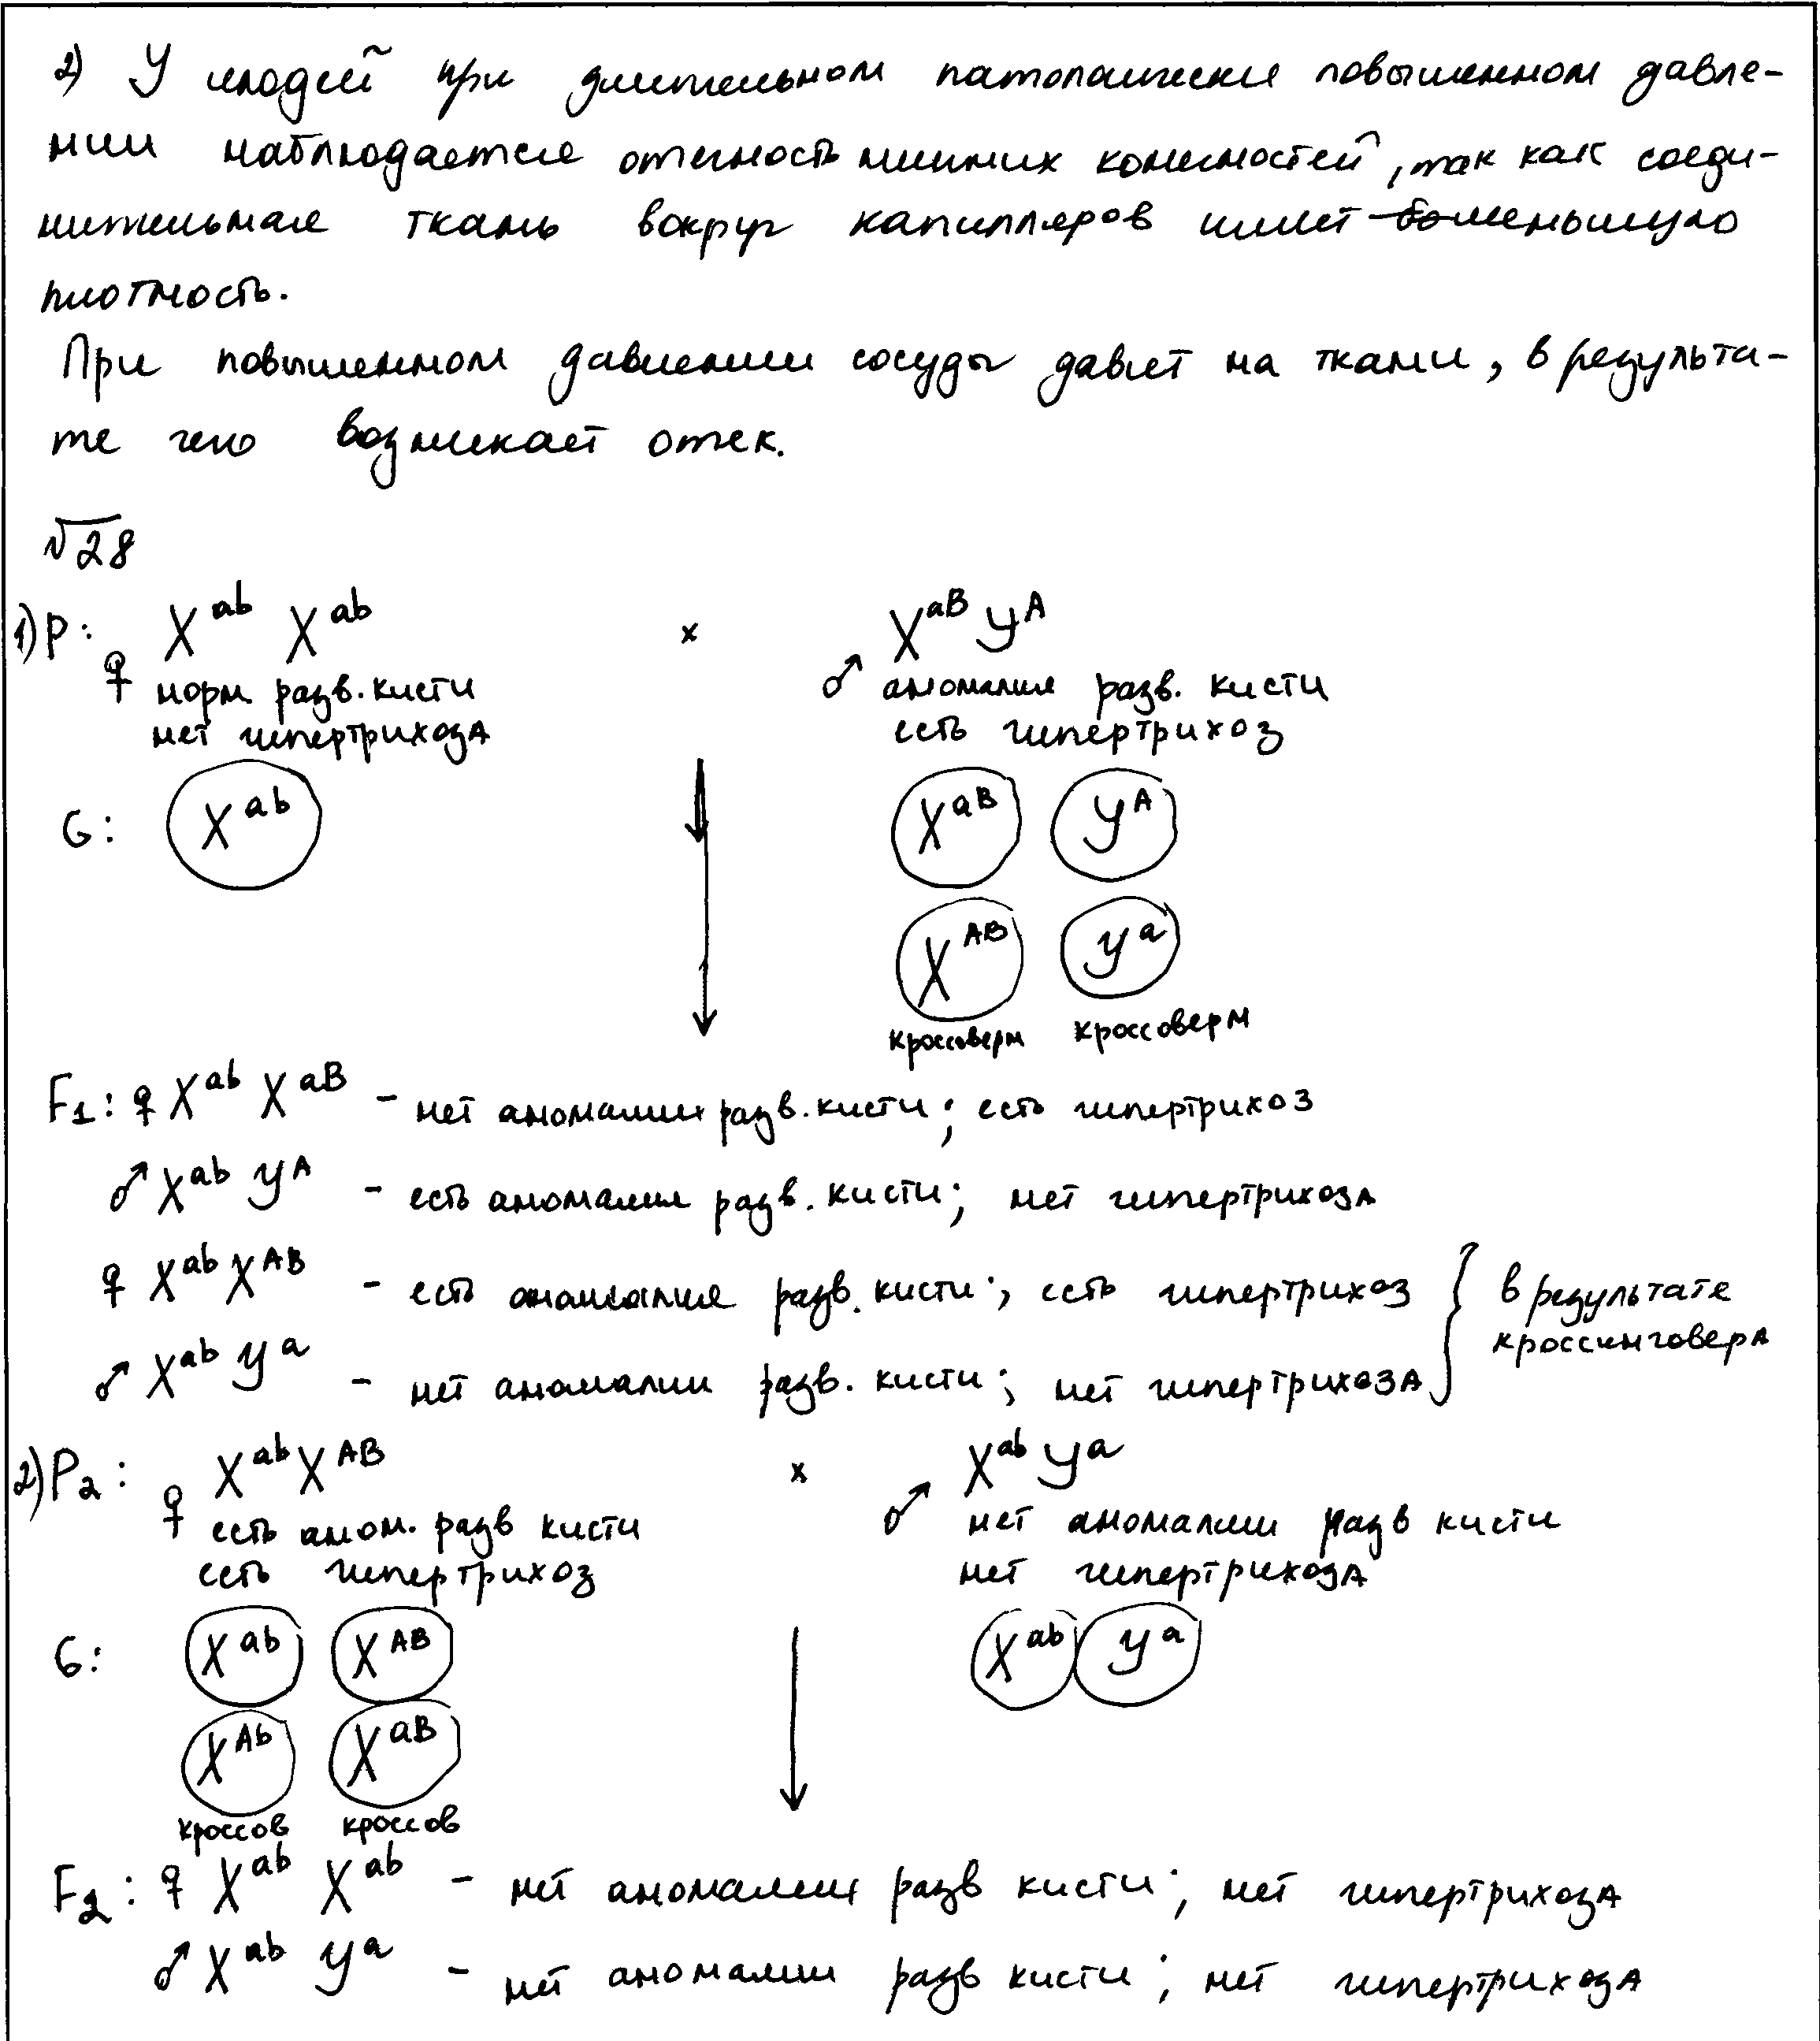 2) У людей при длительном патологически повышенном давле-
нии наблюдается отечность нижних конечностей, так как соеди-
нительная ткань вокруг капилляров имеет бо меньшую
плотность.
При повышенном давлении сосуды давят на ткани, в результа-
те чего возникает отек.
√28
1) P: ♀ X^ab X^ab × ♂ X^aB Y^A
норм. разв. кисти аномалия разв. кисти
нет гипертрихоза есть гипертрихоз
G: X^ab X^aB Y^A
X^AB Y^a
кроссоверн кроссоверн
F1: ♀ X^ab X^aB – нет аномалии разв. кисти; есть гипертрихоз
♂ X^ab Y^A – есть аномалия разв. кисти; нет гипертрихоза
♀ X^ab X^AB – есть аномалия разв. кисти; есть гипертрихоз } в результате
♂ X^ab Y^a – нет аномалии разв. кисти; нет гипертрихоза } кроссинговера
2) P2: ♀ X^ab X^AB × ♂ X^ab Y^a
есть аном. разв кисти нет аномалии разв кисти
есть гипертрихоз нет гипертрихоза
G: X^ab X^AB X^ab Y^a
X^Ab X^aB
кроссов кроссов
F2: ♀ X^ab X^ab – нет аномалии разв кисти; нет гипертрихоза
♂ X^ab Y^a – нет аномалии разв кисти; нет гипертрихоза